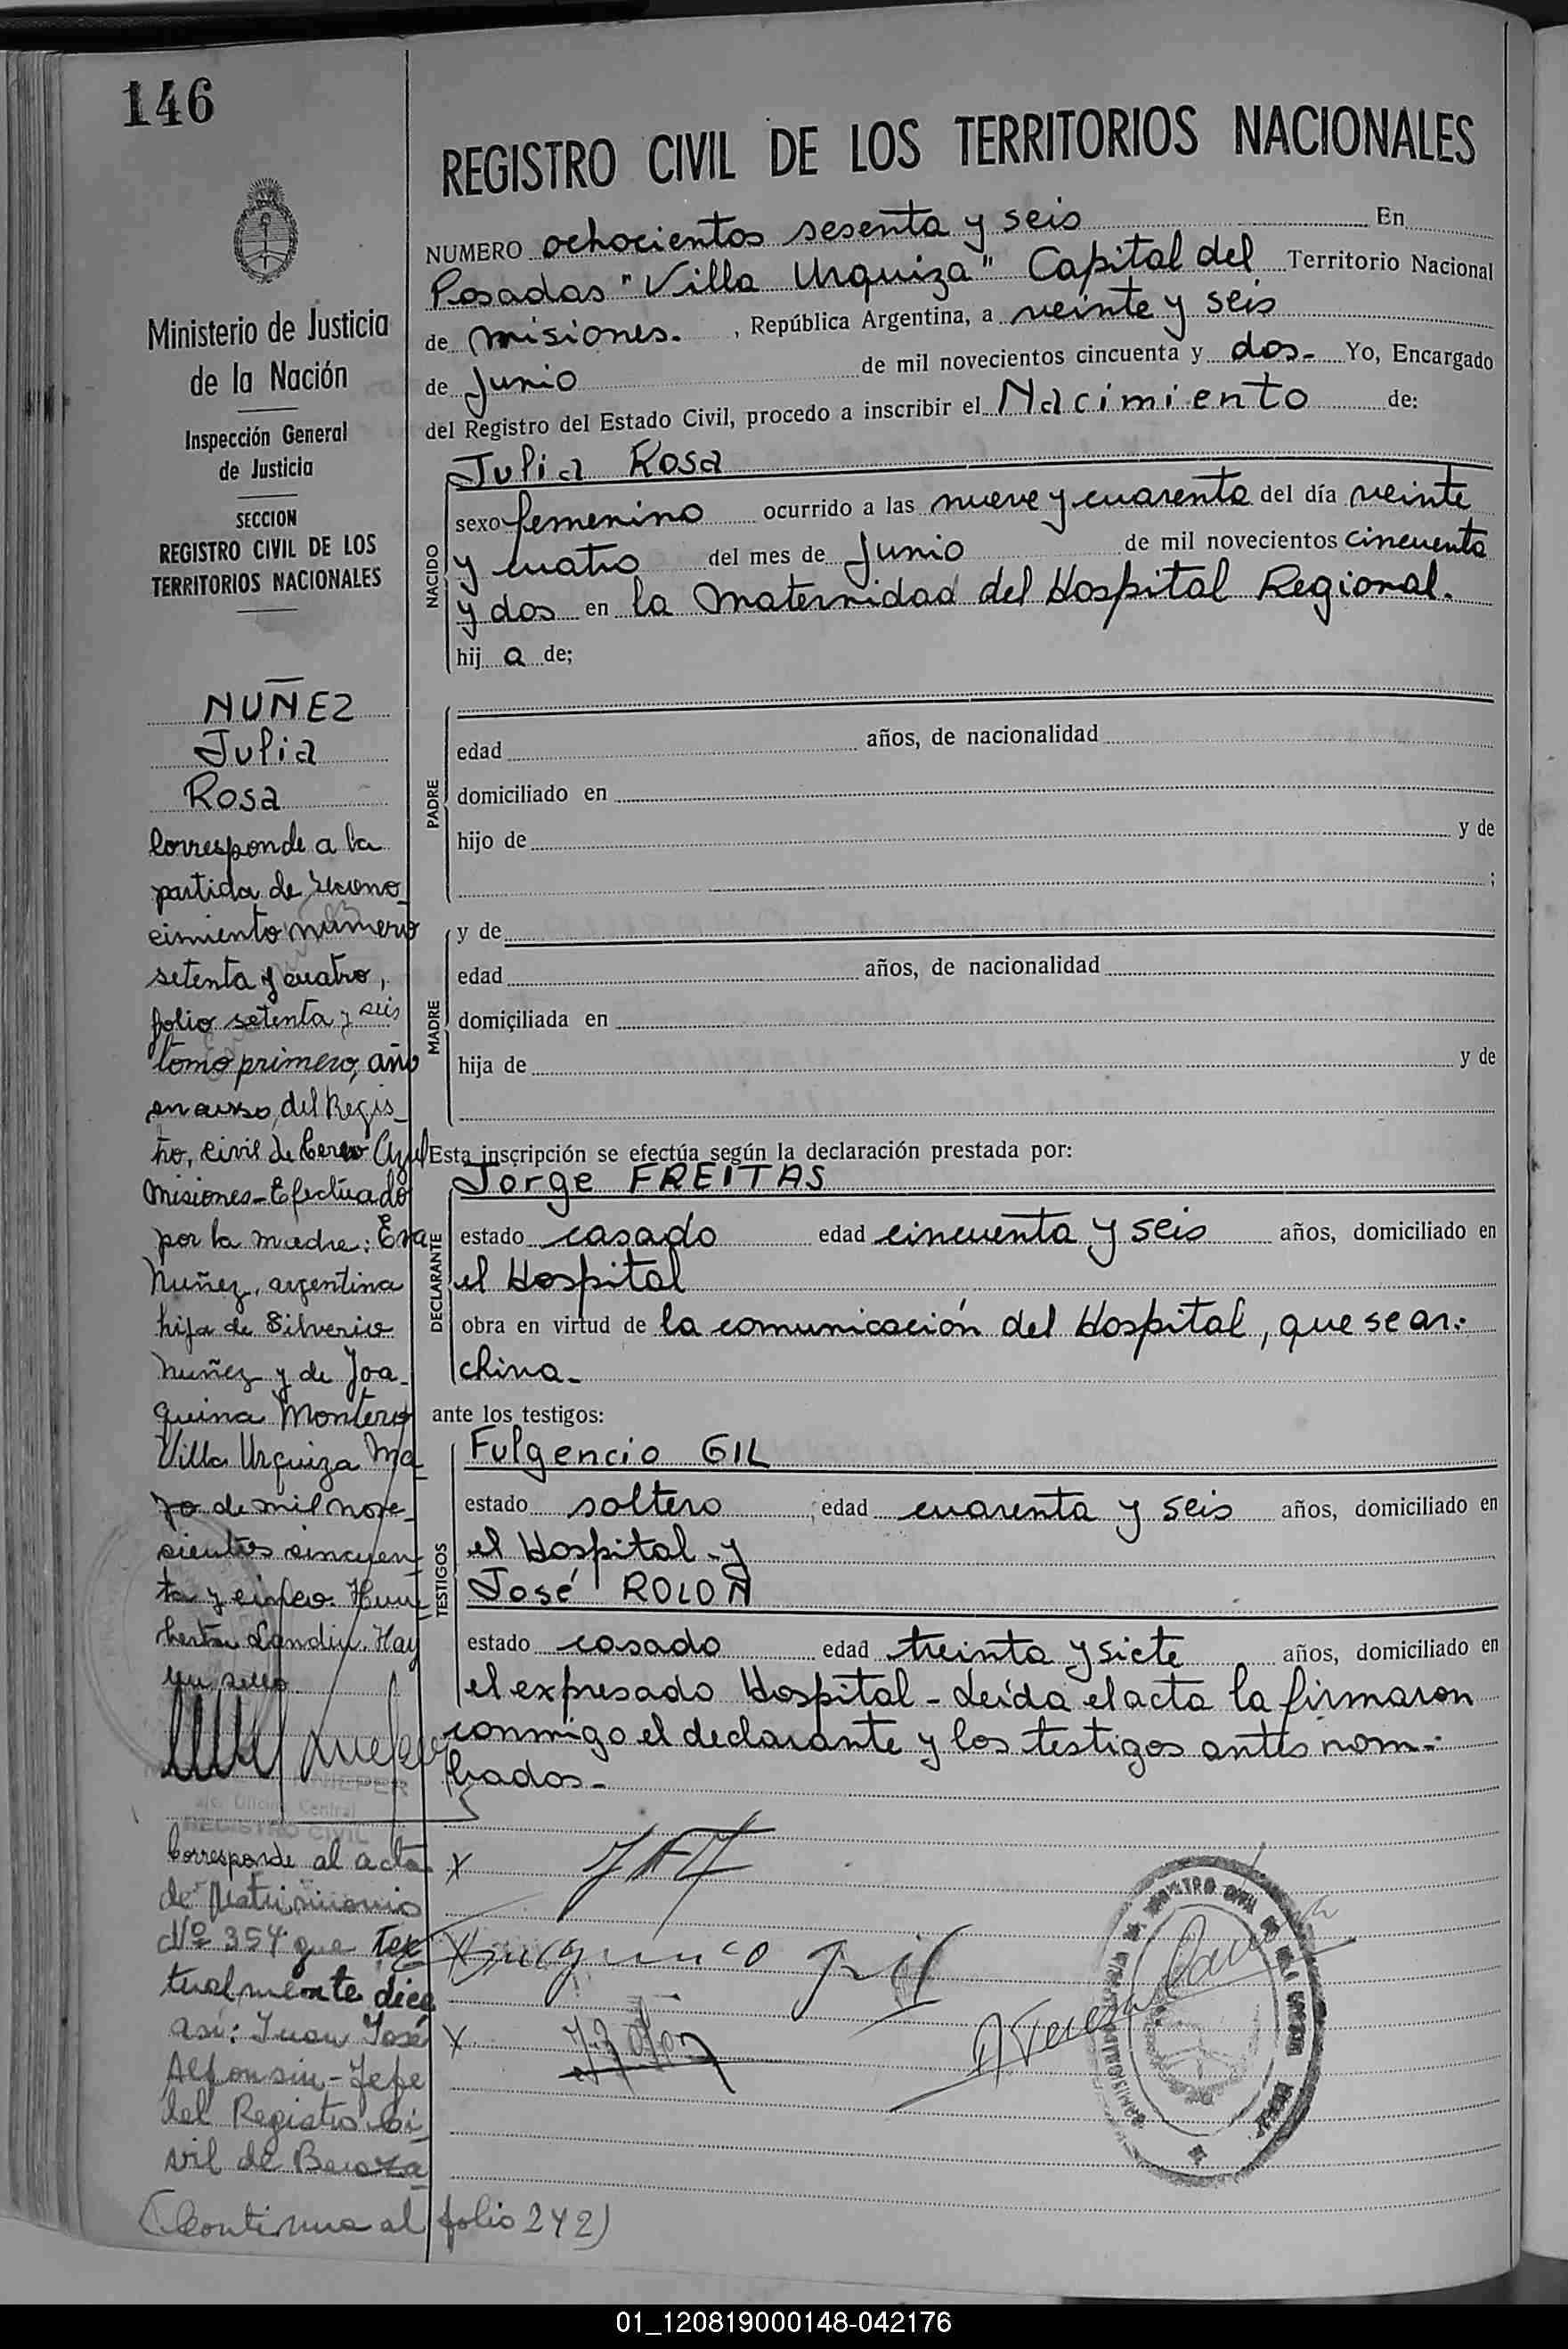 146
Ministerio de Justicia
de la Nación
Inspección General
de Justicia
SECCION
REGISTRO CIVIL DE LOS
TERRITORIOS NACIONALES
NUÑEZ
Julia
Rosa
Corresponde a la
partida de recono_
cimiento numero
setenta y cuatro,
folio setenta y seis
tomo primero, año
en curso, del Regis_
tro, civil de Cerro Azul
Misiones-Efectuado
por la madre: Eva
Nuñez, argentina
hija de Silverio
Nuñez y de Joa_
quina Montero
Villa Urquiza Ma_
yo de mil nove_
cientos cincuen_
ta y cinco. Hum
berto Landin. Hay
un sello
a/c. Oficina Central
REGISTRO CIVIL
Corresponde al acta
de Matrimonio
Nº 354 que tex_
tualmente dice
asi: Juan José
Alfonsin-Jefe
del Registro Ci_
vil de Beraza_
(Continua al folio 242)
REGISTRO CIVIL DE LOS TERRITORIOS NACIONALES
NUMERO ochocientos sesenta y seis En
Posadas "Villa Urquiza" Capital del Territorio Nacional
de misiones. , República Argentina, a veinte y seis
de Junio de mil novecientos cincuenta y dos- Yo, Encargado
del Registro del Estado Civil, procedo a inscribir el Nacimiento de:
NACIDO
Julia Rosa
sexo femenino ocurrido a las nueve y cuarenta del día veinte
y cuatro del mes de Junio de mil novecientos cincuenta
y dos en la Maternidad del Hospital Regional.
hij a de;
PADRE
edad años, de nacionalidad
domiciliado en
hijo de y de
;
MADRE
y de
edad años, de nacionalidad
domiciliada en
hija de y de
Esta inscripción se efectúa según la declaración prestada por:
DECLARANTE
Jorge FREITAS
estado casado edad cincuenta y seis años, domiciliado en
el Hospital
obra en virtud de la comunicación del Hospital, que se ar-
chiva-
ante los testigos:
TESTIGOS
Fulgencio GIL
estado soltero , edad cuarenta y seis años, domiciliado en
el Hospital y
José ROLON
estado casado edad treinta y siete años, domiciliado en
el expresado Hospital - Leída el acta la firmaron
conmigo el declarante y los testigos antes nom-
brados-
X
X Fulgencio Gil
X J. Rolon
01_120819000148-042176